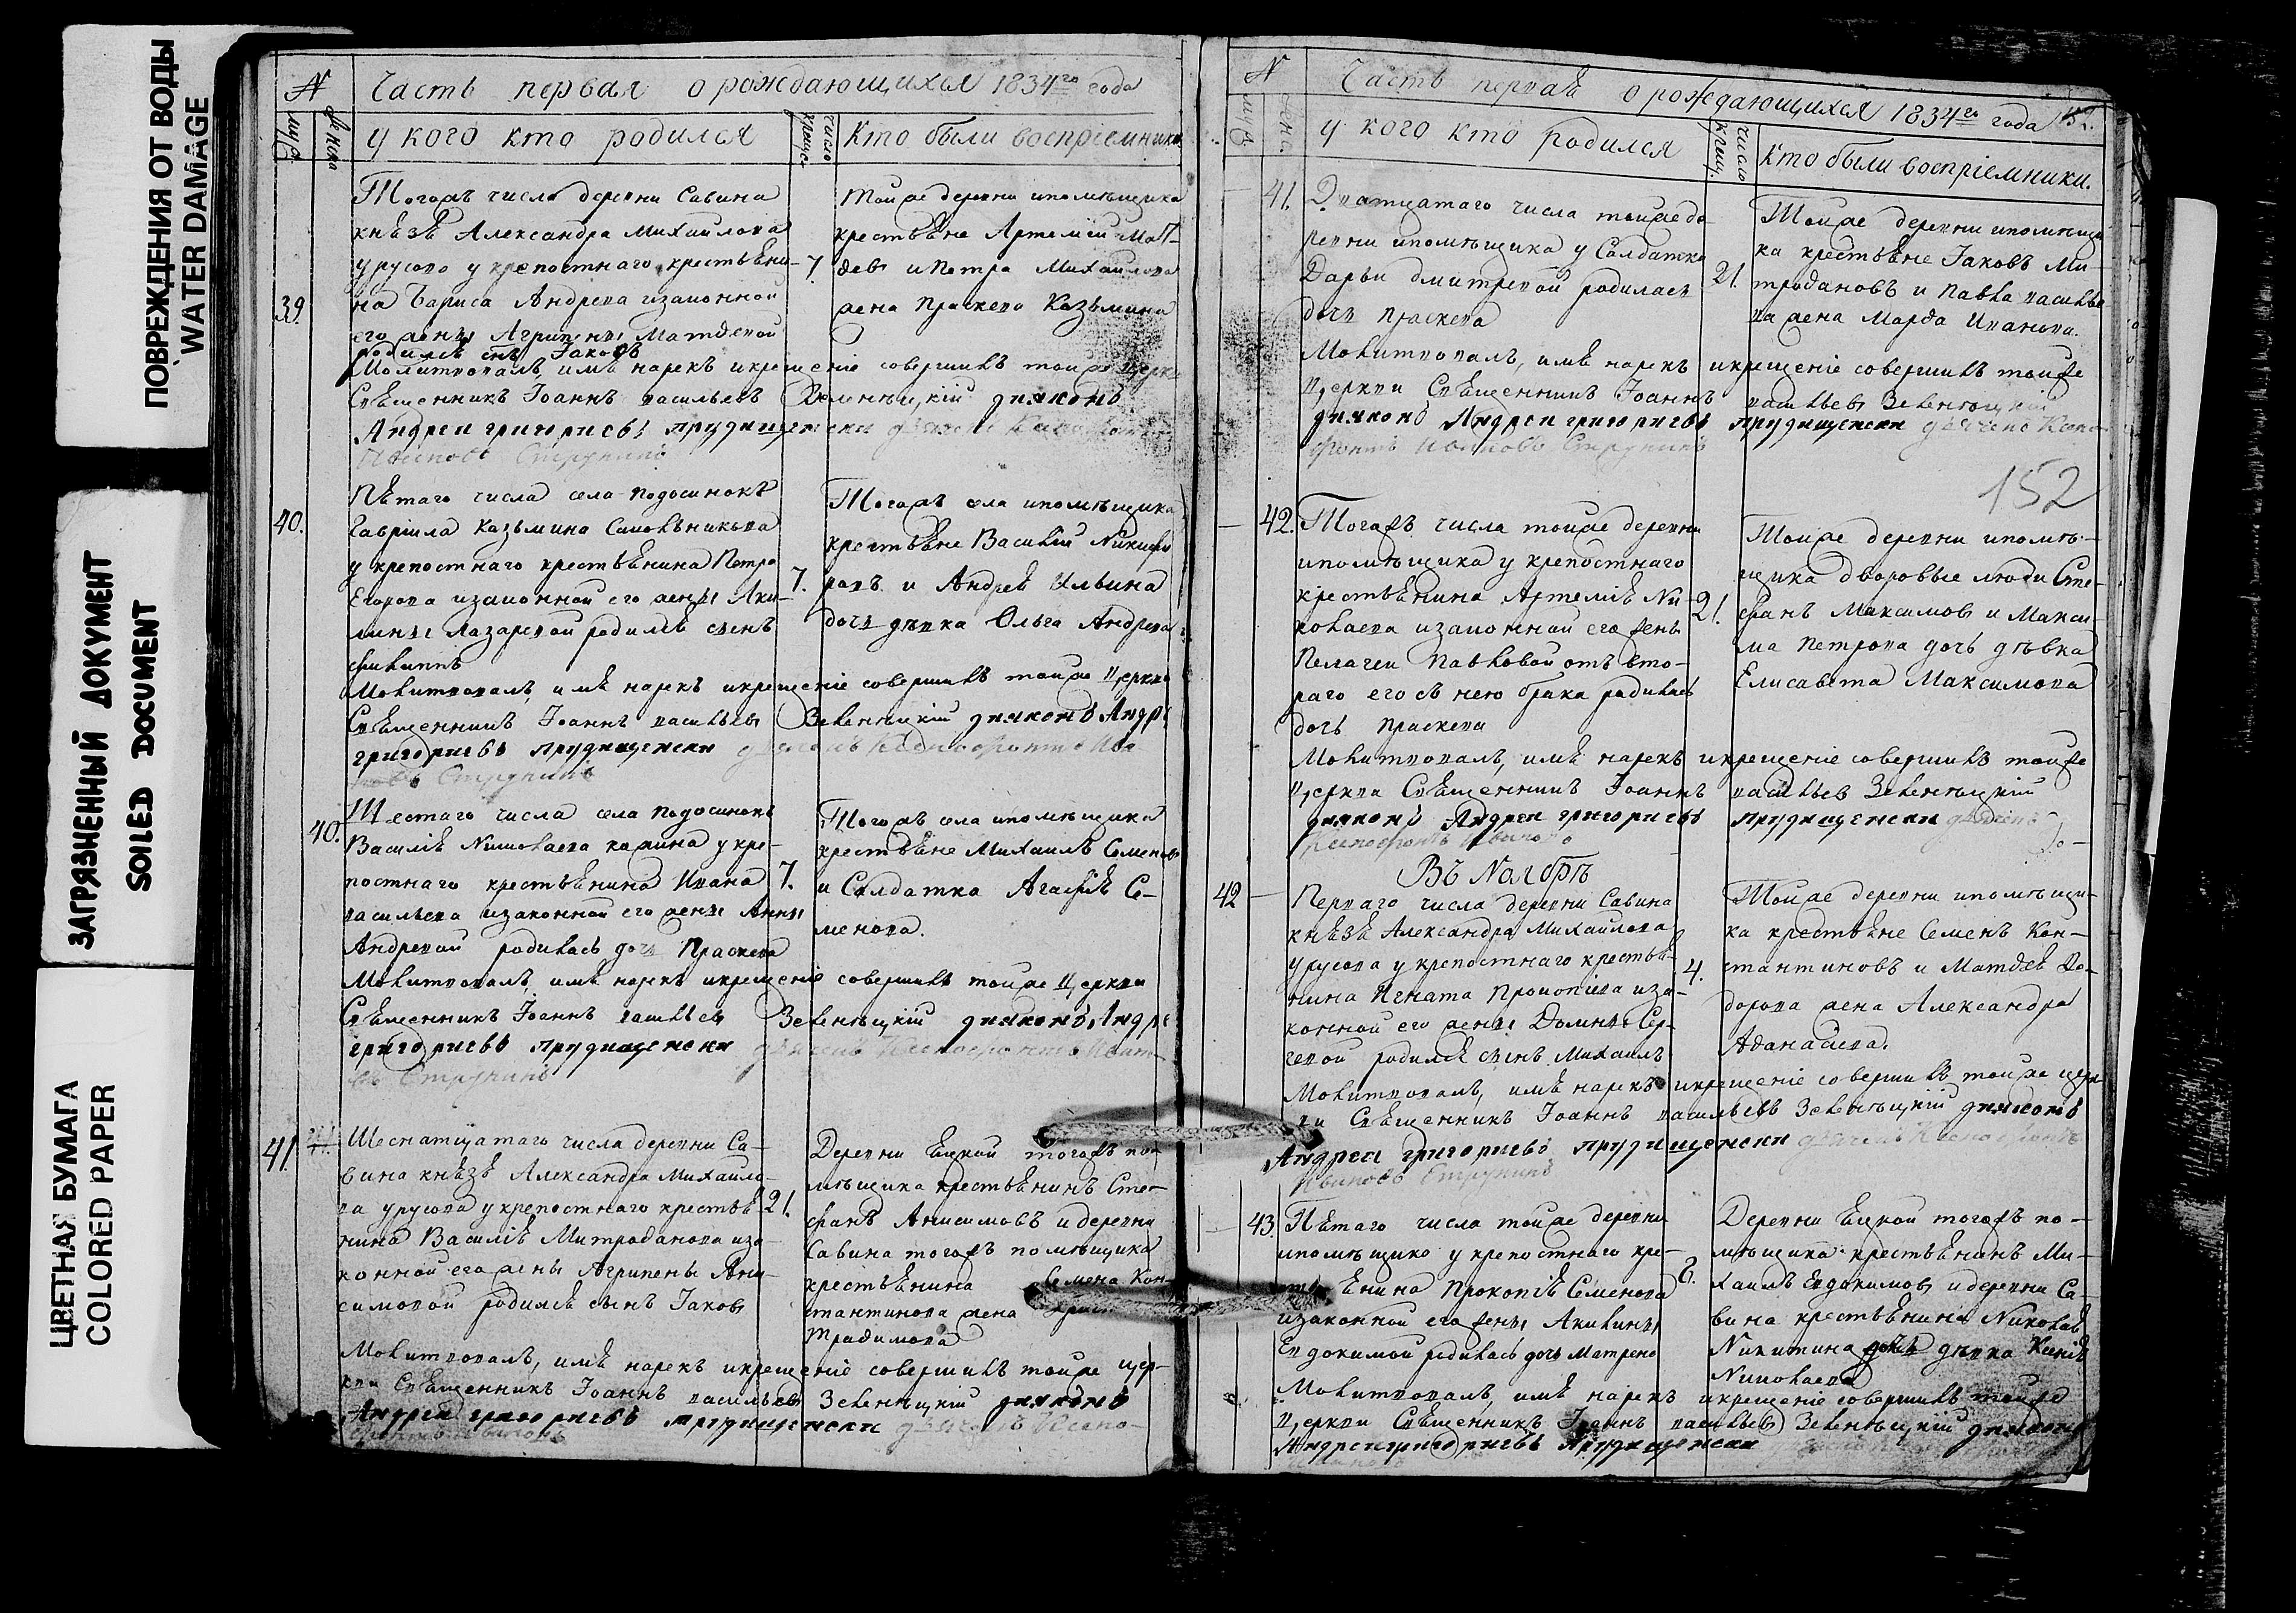 ПОВРЕЖДЕНИЯ ОТ ВОДЫ
WATER DAMAGE
ЗАГРЯЗНЕННЫЙ ДОКУМЕНТ
SOILED DOCUMENT
ЦВЕТНАЯ БУМАГА
COLORED PAPER
№ Часть первая о рождающихся 1834го года
муж. женс. у кого кто родился число крещ. Кто были воспріемники
Тогожъ числа деревни Савина
князя Александра Михайлова
урусова у крепостнаго крестьяни-
39. на Бариса Андреева изаконной
его жены Агрипены Матѳевой
родился снъ Іаковъ
7.
тойже деревни ипомѣщика
крестьяне Артемій Мат-
ѳевъ и Петра Михайлова
жена Праскева Казьмина
Молитвовалъ, имя нарекъ икрещеніе совершилъ тойже церкви
Священникъ Іоаннъ васильевъ Зеленецкій диаконъ
Андреи григориевъ прудищенски
Ивановъ Струнинъ
40. Пятаго числа села подосинокъ
Гавріила Казьмина Синельникова
у крепостнаго крестьянина Петра
Егорова изаконной его жены Аки-
лины Лазаревой родился сынъ
филиппъ
7.
Тогожъ села ипомѣщика
крестьяне Василій Никифо
ровъ и Андрея Ильина
дочь дѣвка Ольга Андреева
Молитвовалъ, имя нарекъ икрещеніе совершилъ тойже церкви
Священникъ Іоаннъ васильевъ Зеленецкій диаконъ Андре
григориевъ прудищенски дьячекъ Ксенофонтъ Ива
новъ Струнинъ
40. Шестаго числа села подосинокъ
Василія Николаева у кре-
постнаго крестьянина Ивана
васильева изаконной его жены Анны
Андревой родилась дочь Праскева
7.
Тогожъ села ипомѣщика
крестьяне Михаилъ Семеновъ
и Салдатка Агафія Се-
менова.
Молитвовалъ, имя нарекъ икрещеніе совершилъ тойже церкви
Священникъ Іоаннъ васильевъ Зеленецкій диаконъ Андре
григориевъ прудищенски дьячекъ Ксенофонтъ Ивано-
въ Струнинъ
41. Шеснатцатаго числа деревни Са-
вина князя Александра Михаило-
ва урусова у крепостнаго крестья-
нина Василія Митрофанова иза-
конной его жены Агрипены Ани-
симовой родился сынъ Іаковъ
21.
Деревни Ецкой тогожъ по-
мѣщика крестьянинъ Сте-
фанъ Анисимовъ и деревни
Савина тогожъ помѣщика
крестьянина Семена Кон-
стантинова жена
Трафимова
Молитвовалъ, имя нарекъ икрещеніе совершилъ тойже цер-
кви Священникъ Іоаннъ васильевъ Зеленецкій диаконъ
Андреи григориевъ прудищенски дьячекъ Ксено-
фонтъ Ивановъ
№ Часть первая о рождающихся 1834го года 152.
муж. женс. у кого кто родился число крещ. Кто были воспріемники.
41. Дватцатаго числа тойже де
ревни ипомѣщика у Салдатки
Дарьи дмитревой родилась
дочь праскева
21.
Тойже деревни ипомѣщи
ка крестьяне Іаковъ Ми-
трофановъ и Павла василье
ва жена Марфа Иванова.
Молитвовалъ, имя нарекъ икрещеніе совершилъ тойже
церкви Священникъ Іоаннъ васильевъ Зеленецкій
диаконъ Андреи григориевъ прудищенски дьячекъ Ксено
фонтъ Ивановъ Струнинъ
152
42. Тогожъ числа тойже деревни
ипомѣщика у крепостнаго
крестьянина Артемія Ни-
колаева изаконной его жены
Пелагеи Павловой отъ вто-
раго его съ нею брака родилась
дочь праскева
21.
Тойже деревни ипомѣ-
щика дворовые люди Сте-
фанъ Максимовъ и Макси-
ма Петрова дочь дѣвка
Елисавета Максимова
Молитвовалъ, имя нарекъ икрещеніе совершилъ тойже
церкви Священникъ Іоаннъ васильевъ Зеленецкій
диаконъ Андреи григориевъ прудищенски дьячекъ
Ксенофонтъ Ивановъ
Въ Ноябрѣ
42 Перваго числа деревни Савина
князя Александра Михайлова
урусова у крепостнаго крестья-
нина Игната Прокопіева иза-
конной его жены Домны Сер-
геевой родился сынъ Михаилъ
4.
Тойже деревни ипомѣщи-
ка крестьяне Семенъ Кон-
стантиновъ и Матѳея Ѳе-
дорова жена Александра
Аѳанасіева.
Молитвовалъ, имя нарекъ икрещеніе совершилъ тойже церк
ви Священникъ Іоаннъ васильевъ Зеленецкій диаконъ
Андреи григориевъ прудищенски дьячекъ Ксенофонтъ
Ивановъ Струнинъ
43. Пятаго числа тойже деревни
ипомѣщика у крепостнаго кре-
стьянина Прокопія Семенова
изаконной его жены Акилины
Евдокимой родилась дочь Матрена
Деревни Ецкой тогожъ по-
мѣщика крестьянинъ Ми-
хаилъ Евдокимовъ идеревни Са-
вина крестьянина Николая
Никитина дочь дѣвка Ксенія
Николаева
Молитвовалъ, имя нарекъ икрещеніе совершилъ тойже
церкви Священникъ Іоаннъ васильевъ Зеленецкій диаконъ
Андреи григориевъ прудищенски